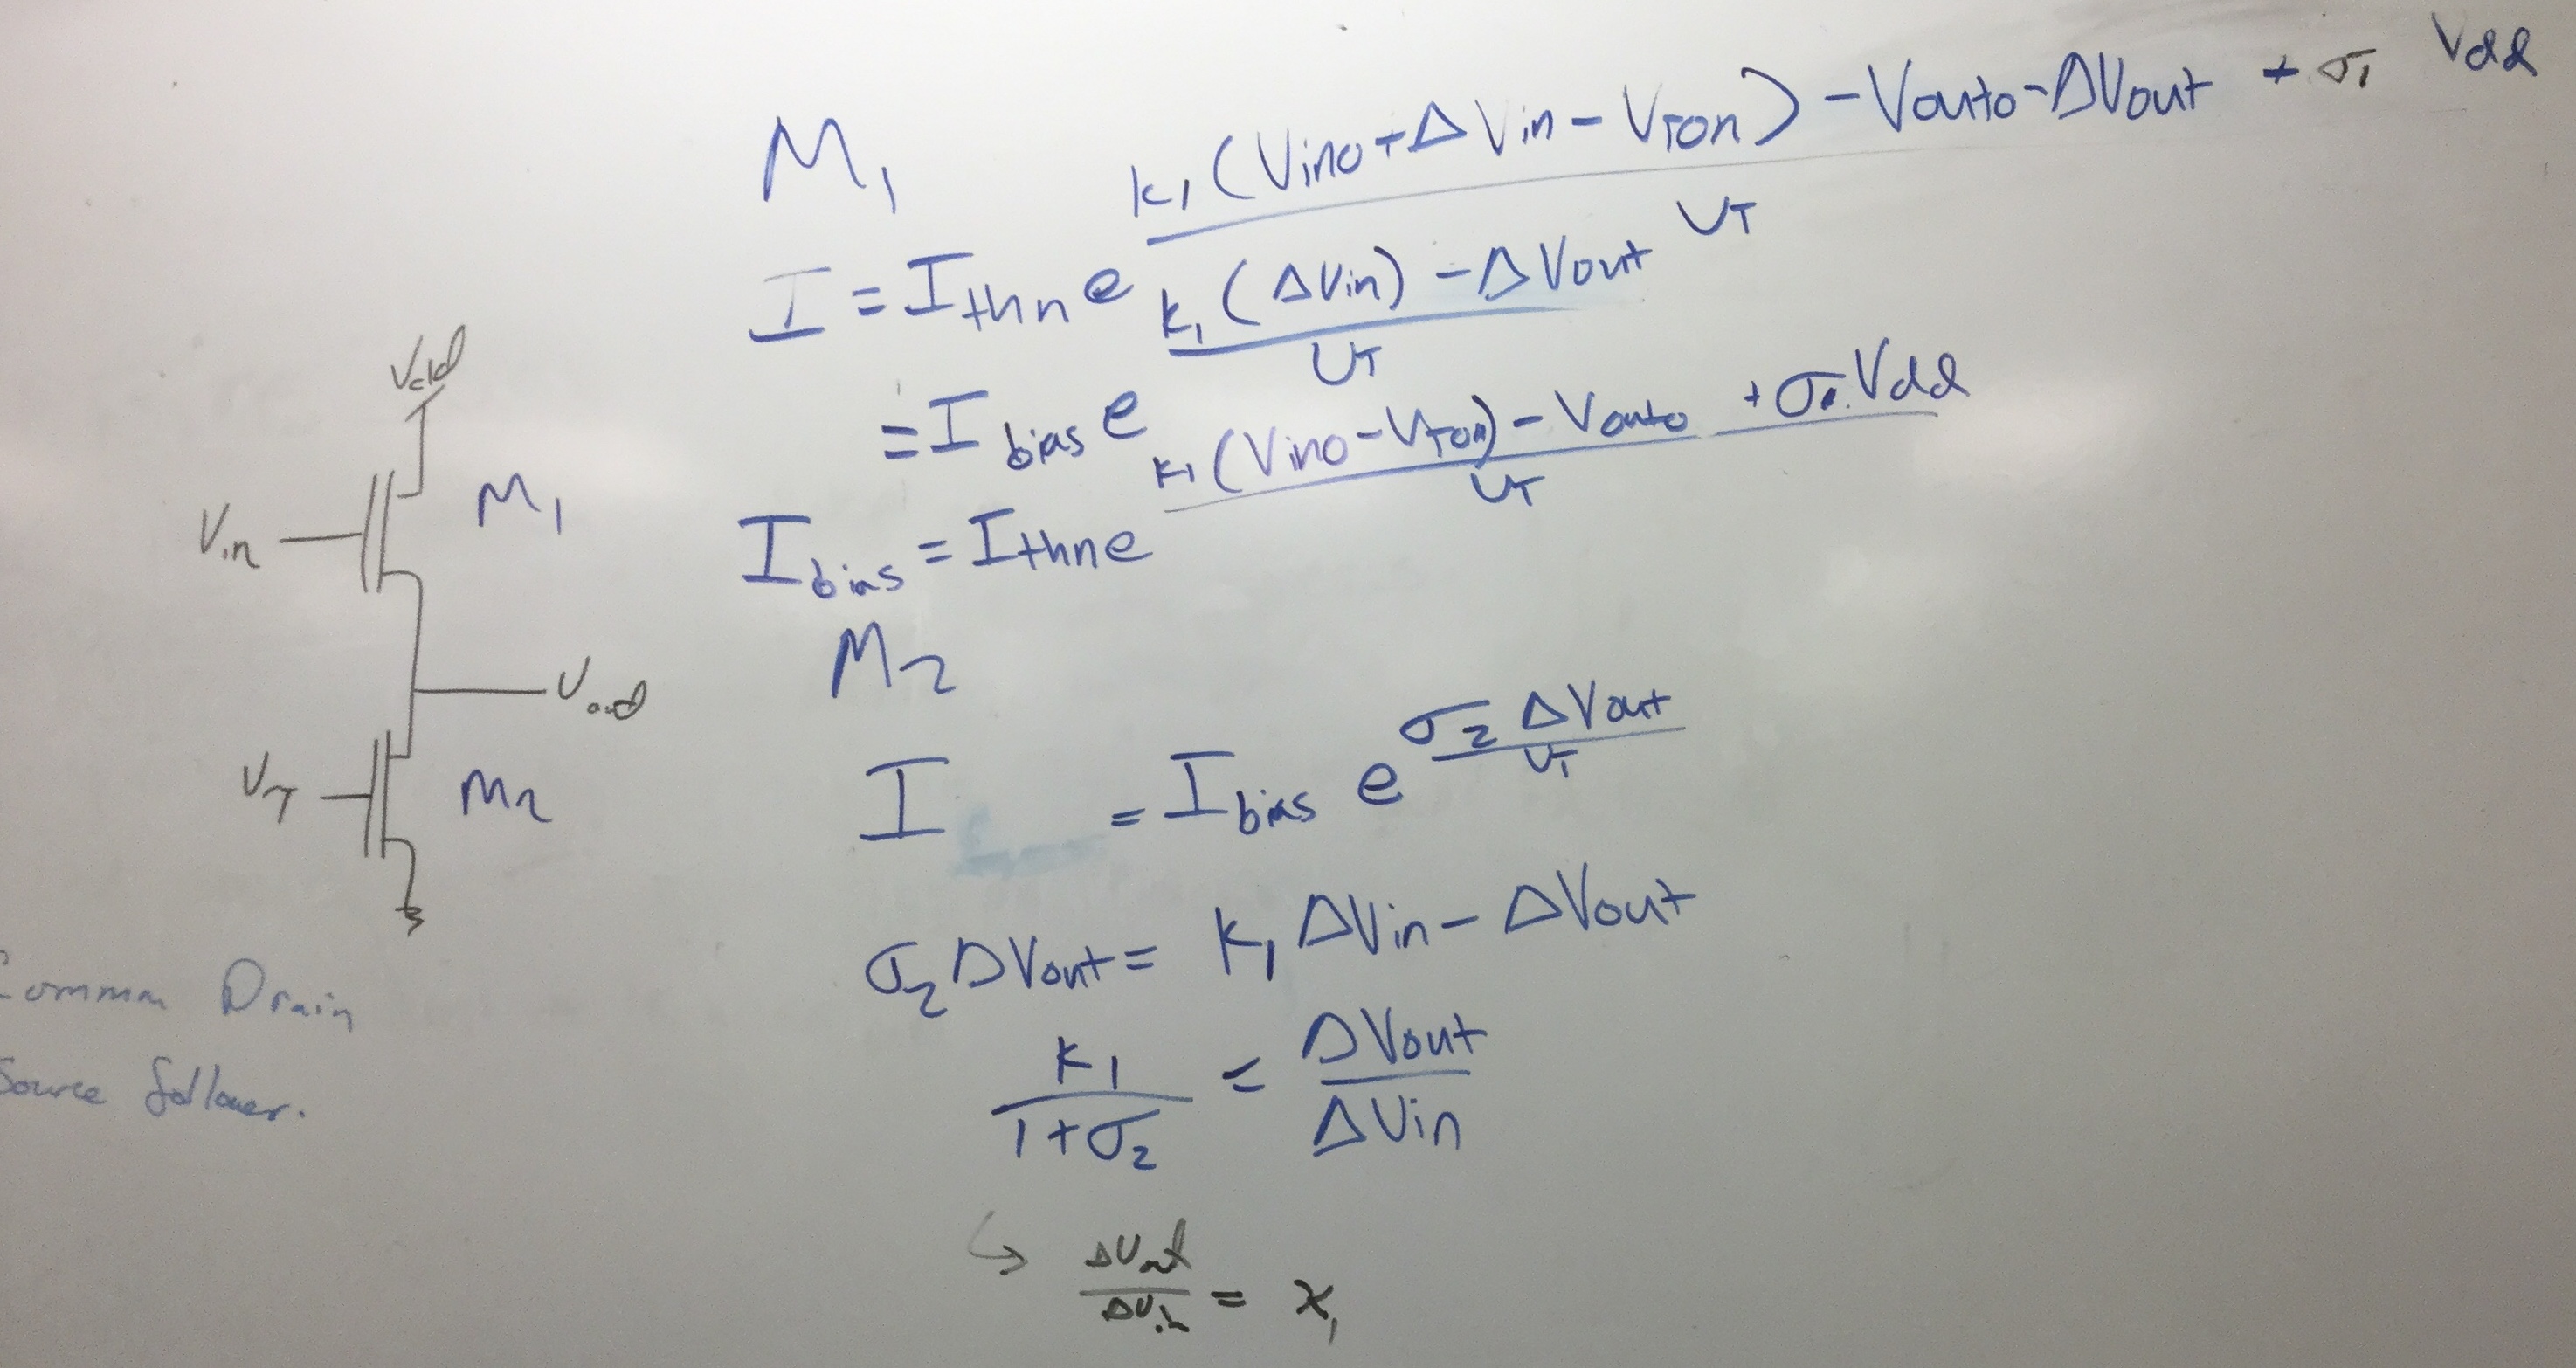 Vdd
Vin
M1
Vout
Vτ
M2
Common Drain
Source follower.
M1
I = Ithn e^((k1(Vin0+ΔVin-VTon) - Vout0 - ΔVout + σ1 Vdd)/UT)
= Ibias e^((k1(ΔVin) - ΔVout)/UT)
Ibias = Ithn e^((k1(Vin0-VTon) - Vout0 + σ1 Vdd)/UT)
M2
I = Ibias e^(σ2 ΔVout/UT)
σ2 ΔVout = k1 ΔVin - ΔVout
k1/(1+σ2) = ΔVout/ΔVin
↳ ΔVout/ΔVin = ϰ1